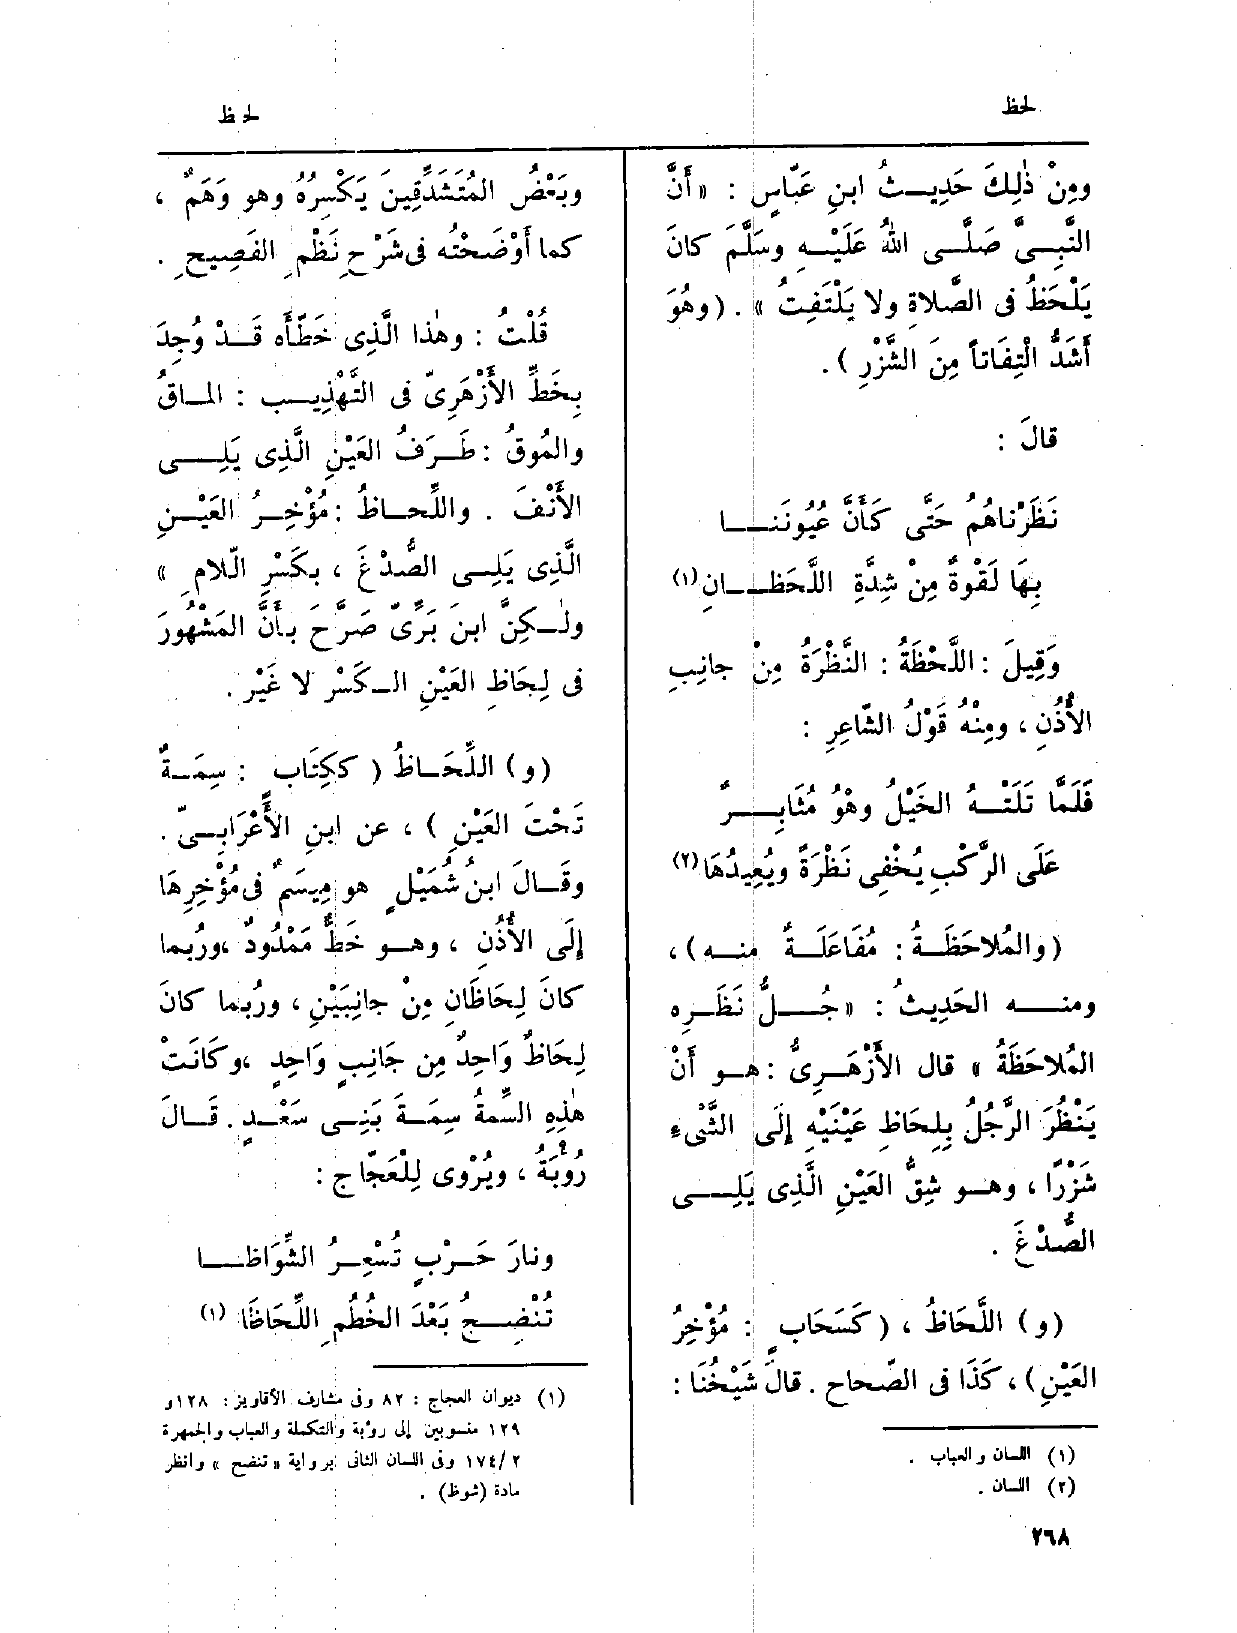 لحظ
لحظ
ومِنْ ذٰلِكَ حَدِيثُ ابنِ عَبّاسٍ : « أَنَّ
النَّبِىَّ صَلَّى اللهُ عَلَيْه وسَلَّمَ كانَ
يَلْحَظُ فى الصَّلاةِ ولا يَلْتَفِتُ » . (وهُوَ
أَشَدُّ الْتِفَاتاً مِنَ الشَّزْرِ ) .
قالَ :
نَظَرْناهُمُ حَتَّى كَأَنَّ عُيُونَنَا
بِهَا لَقْوَةٌ مِنْ شِدَّةِ اللَّحَظَانِ (١)
وَقِيلَ : اللَّحْظَةُ : النَّظْرَةُ مِنْ جانِبِ
الأُذُنِ ، ومِنْهُ قَوْلُ الشّاعِرِ :
فَلَمَّا تَلَتْهُ الخَيْلُ وهْوُ مُثَابِرٌ
عَلَى الرَّكْبِ يُخْفِى نَظْرَةً ويُعِيدُهَا (٢)
(والمُلاحَظَةُ : مُفَاعَلَةٌ منه ) ،
ومنه الحَدِيثُ : « جُلُّ نَظَرِه
المُلاحَظَةُ » قال الأَزْهَرِىُّ : هو أَنْ
يَنْظُرَ الرَّجُلُ بِلِحَاظِ عَيْنَيْهِ إِلَى الشَّىْءِ
شَزْرًا ، وهو شِقُّ العَيْنِ الَّذِى يَلِى
الصُّدْغَ .
(و) اللَّحَاظُ ، ( كَسَحَابٍ : مُؤْخِرُ
العَيْنِ ) ، كَذَا فى الصّحاحِ . قالَ شَيْخُنَا :
(١) اللسان والعباب .
(٢) اللسان .
٢٦٨
وبَعْضُ المُتَشَدِّقِينَ يَكْسِرُهُ وهو وَهَمٌ ،
كما أَوْضَحْتُه فى شَرْحِ نَظْمِ الفَصِيحِ .
قُلْتُ : وهٰذا الَّذِى خَطَّأَه قَدْ وُجِدَ
بِخَطِّ الأَزْهَرِىّ فى التَّهْذِيبِ : الماقُ
والمُوقُ : طَرَفُ العَيْنِ الَّذِى يَلِى
الأَنْفَ . واللِّحاظُ : مُؤْخِرُ العَيْنِ
الَّذِى يَلِى الصُّدْغَ ، بكَسْرِ الّلامِ »
ولٰكِنَّ ابنَ بَرِّىّ صَرَّحَ بأَنَّ المَشْهُورَ
فى لِحَاظِ العَيْنِ الكَسْر لا غَيْر .
(و) اللِّحَاظُ ( ككِتَابٍ : سِمَةٌ
تَحْتَ العَيْنِ ) ، عن ابنِ الأَعْرَابِىّ .
وقَالَ ابنُ شُمَيْلٍ هو مِيسَمٌ فى مُؤْخِرِهَا
إِلَى الأُذُنِ ، وهو خَطٌّ مَمْدُودٌ ،ورُبما
كانَ لِحَاظَانِ مِنْ جانِبَيْنِ ، ورُبما كانَ
لِحَاظٌ وَاحِدٌ مِن جَانِبٍ وَاحِدٍ ،وكَانَتْ
هٰذِهِ السِّمَةُ سِمَةَ بَنِى سَعْدٍ . قَالَ
رُؤْبَةُ ، ويُرْوى لِلْعَجّاجِ :
ونارَ حَرْبٍ تُسْعِرُ الشِّوَاظَا
تُنْضِجُ بَعْدَ الخُطُمِ اللِّحَاظَا (١)
(١) ديوان العجاج : ٨٢ وفى مشارف الأقاويز : ١٢٨و
١٢٩ منسوبين إلى رؤبة والتكملة والعباب والجمهرة
٢ /١٧٤ وفى اللسان الثانى برواية « تنضح » وانظر
مادة (شوظ) .